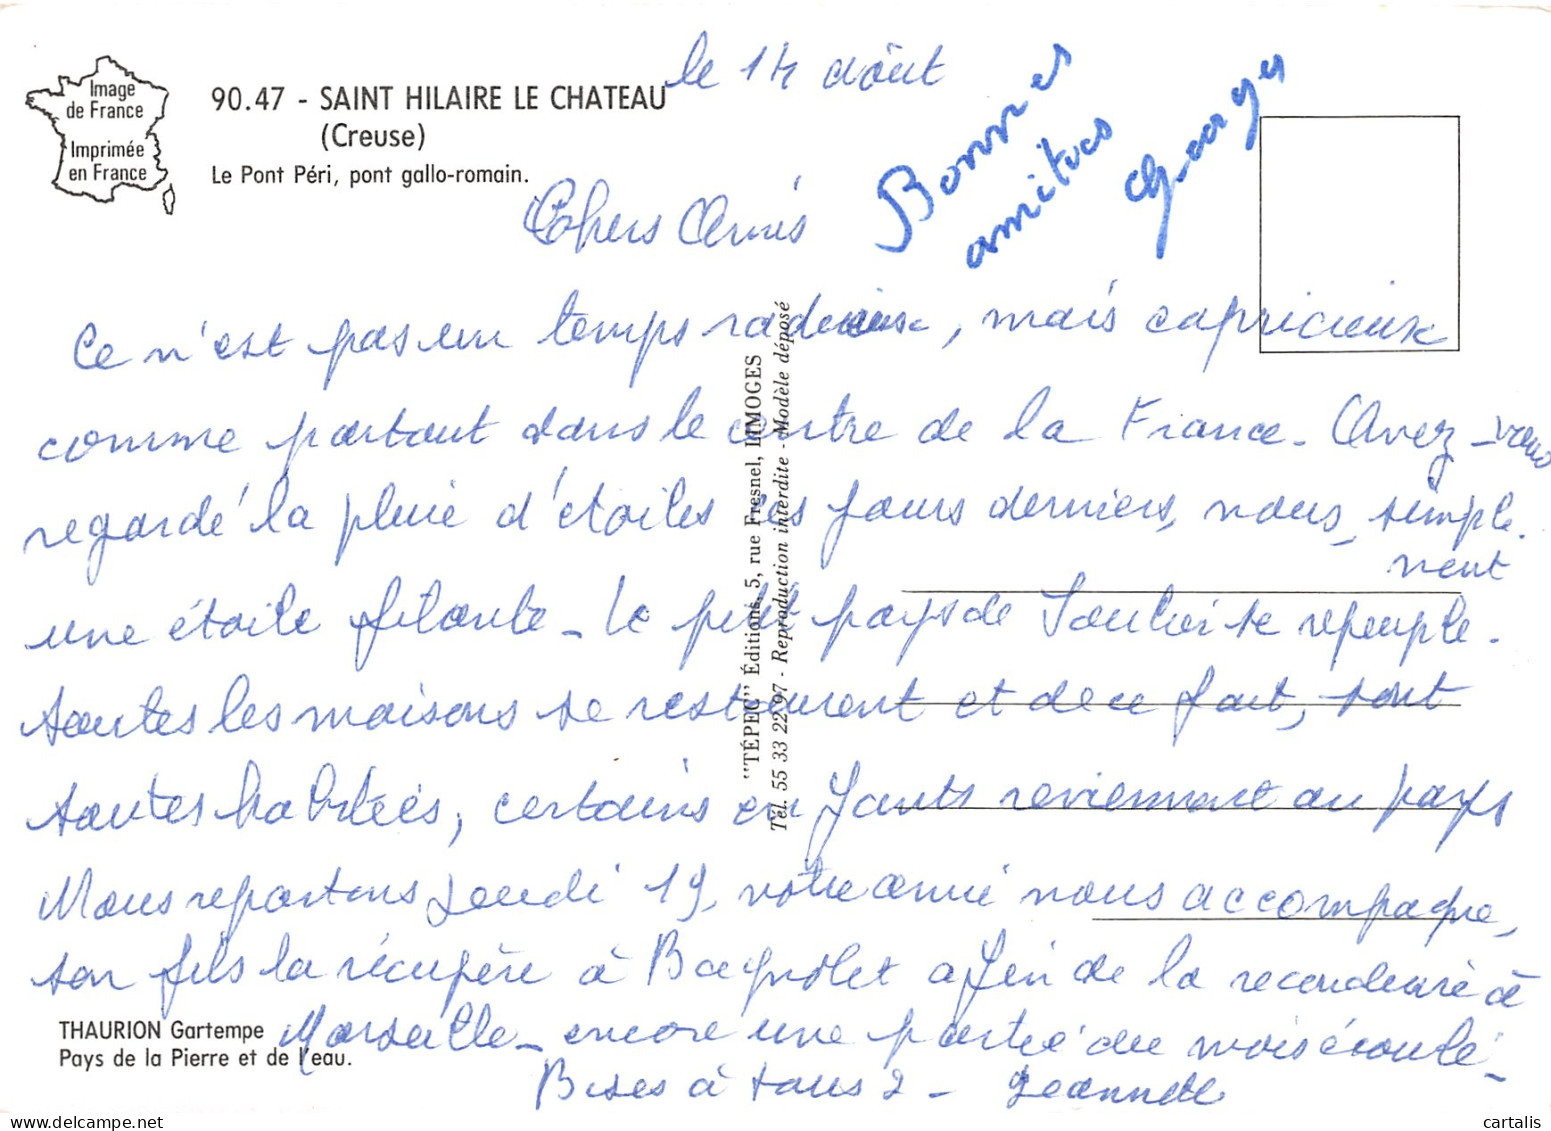 Image
de France
Imprimée
en France
90.47 - SAINT HILAIRE LE CHATEAU
(Creuse)
Le Pont Péri, pont gallo-romain.
le 14 août
Bonnes
amitiés
Georges
Chers Amis
Ce n'est pas un temps radieux, mais capricieux
comme partout dans le centre de la France - Avez-vous
regardé la pluie d'étoiles ces jours derniers, nous, simple-
ment
une étoile filante - Le petit pays de se repeuple -
toutes les maisons se restaurent et de ce fait, sont
toutes habitées, certains en reviennent au pays
Nous repartons Jeudi 19, notre amie nous accompagne,
son fils la récupère à Bagnolet afin de la reconduire à
Marseille - encore une partie du mois écoulé -
Bises à tous 2 - Jeannette
THAURION Gartempe
Pays de la Pierre et de l'eau.
"TÉPEC" Éditions, 5, rue Fresnel, LIMOGES
Tél. 55 33 22 97 - Reproduction interdite - Modèle déposé
cartalis